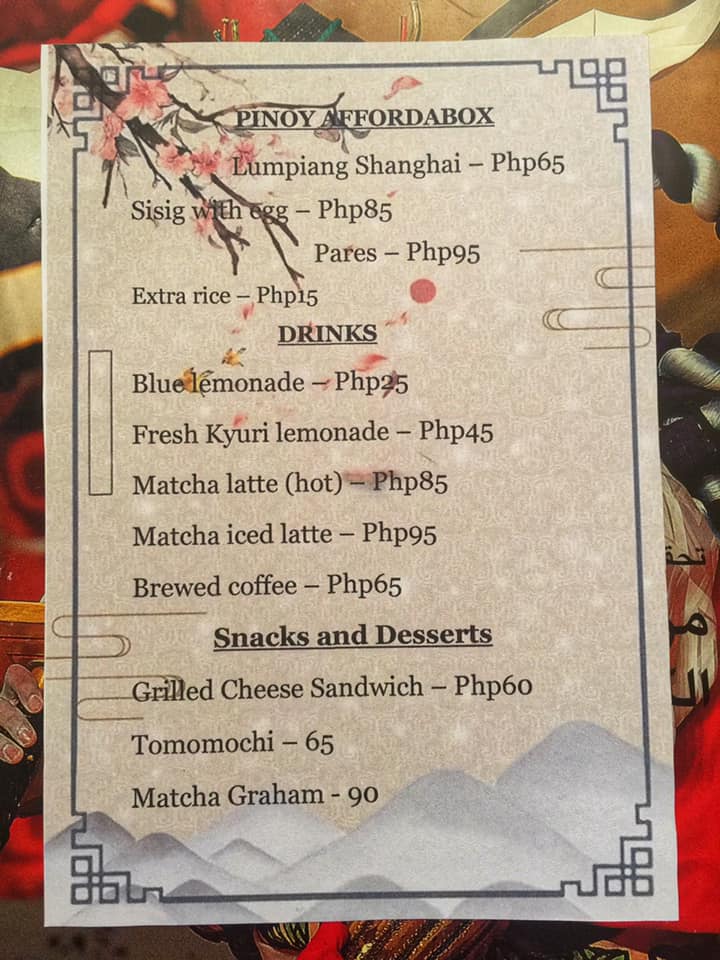 PINOY AFFORDABOX
Lumpiang Shanghai – Php65
Sisig with egg – Php85
Pares – Php95
Extra rice – Php15
DRINKS
Blue lemonade – Php25
Fresh Kyuri lemonade – Php45
Matcha latte (hot) – Php85
Matcha iced latte – Php95
Brewed coffee – Php65
Snacks and Desserts
Grilled Cheese Sandwich – Php60
Tomomochi – 65
Matcha Graham - 90